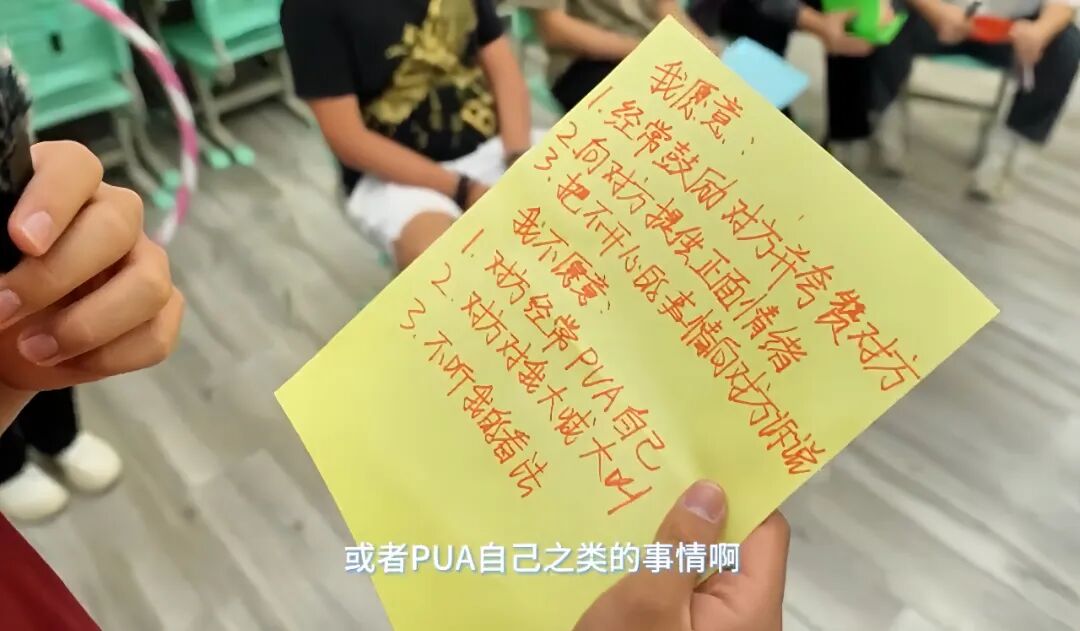 我愿意：
1. 经常鼓励对方并夸赞对方
2. 向对方提供正面情绪
3. 把不开心的事情向对方诉说
我不愿意：
1. 对方经常PUA自己
2. 对方对我大喊大叫
3. 不听我的看法
或者PUA自己之类的事情啊